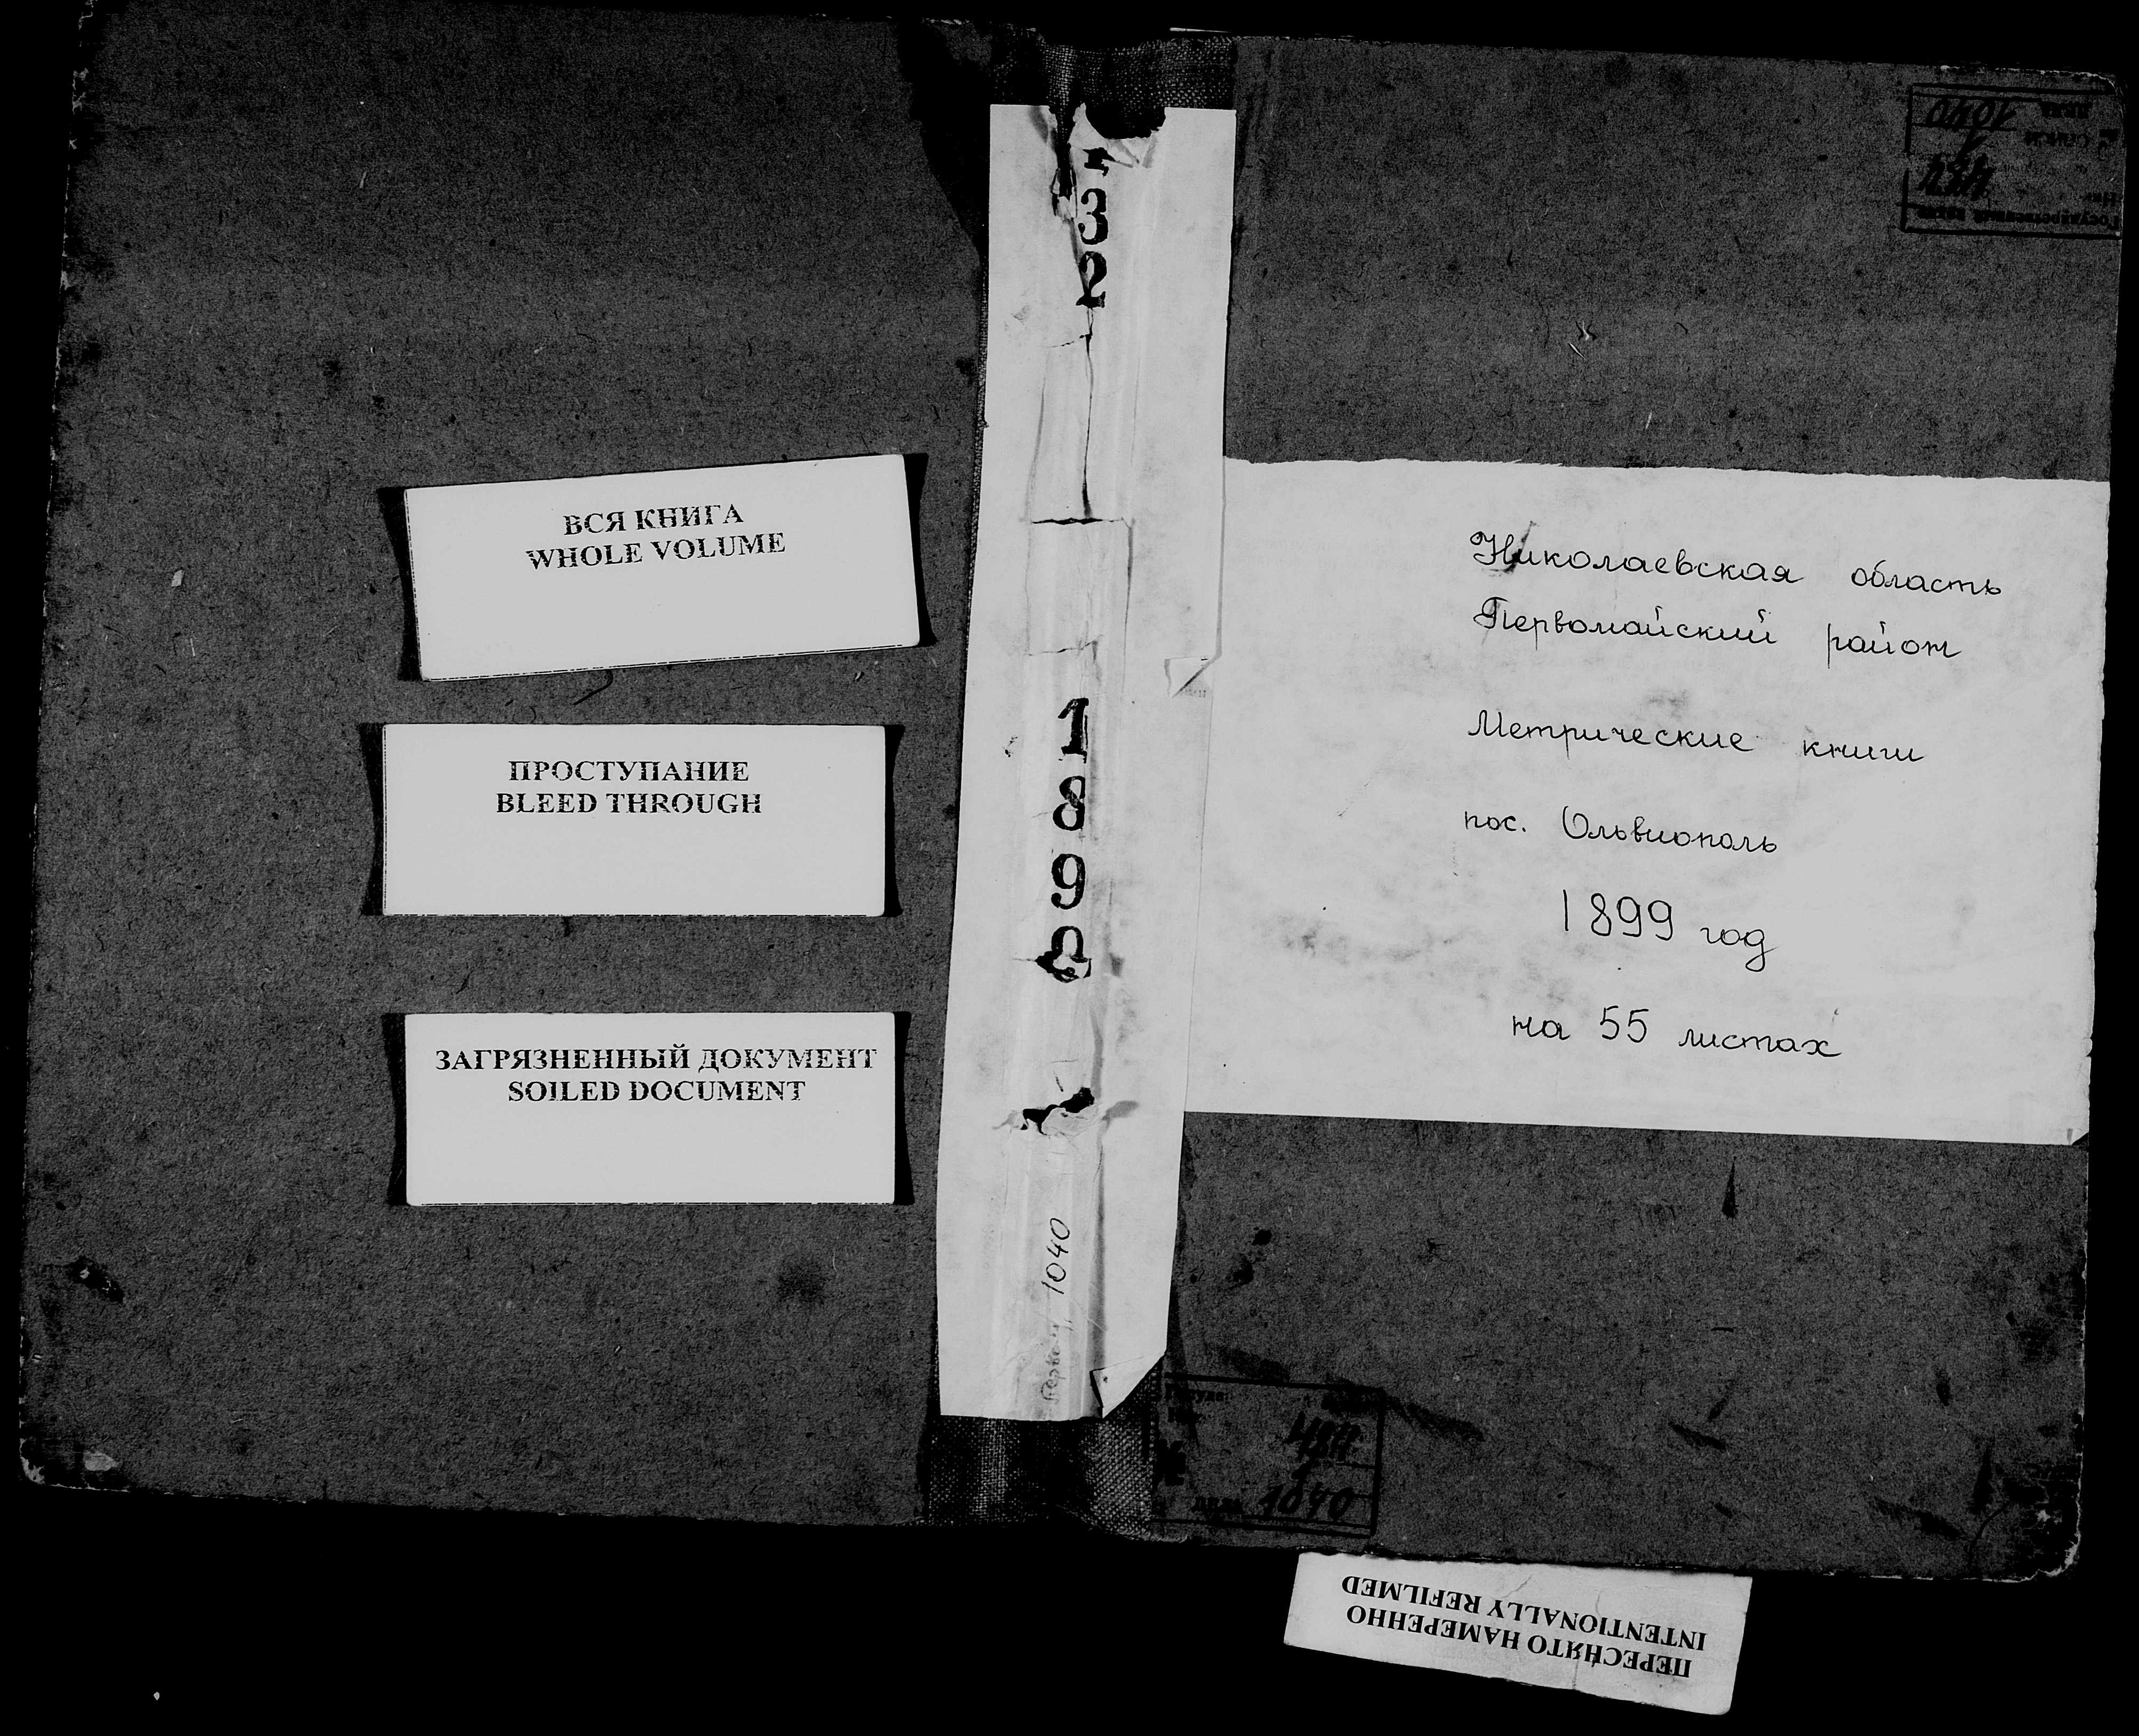 ВСЯ КНИГА
WHOLE VOLUME
ПРОСТУПАНИЕ
BLEED THROUGH
ЗАГРЯЗНЕННЫЙ ДОКУМЕНТ
SOILED DOCUMENT
32
189
1040
Николаевская область
Первомайский район
Метрические книги
пос. Ольвиополь
1899 год
на 55 листах
Государственный архив
484
1
1040
484
1
дело 1040
ПЕРЕСНЯТО НАМЕРЕННО
INTENTIONALLY REFILMED